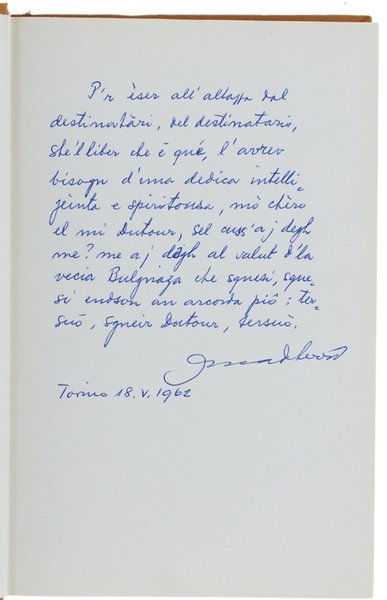 P'r èser all' altazza dal
destinatàri, del destinatario,
ste' liber che è qué, l'avrev
bisogn d'una dedica intelli-
zeinta e spiritousa, mò chèro
el mi Dutour, sel cuss'aj degh
me? me aj dégh al salut d'la
vecia Bulgnaza che sgnesi, sgne-
si endson an arcorda piô: ter-
suô, sgneir Dutour, tersuò.
Torino 18.V.1962